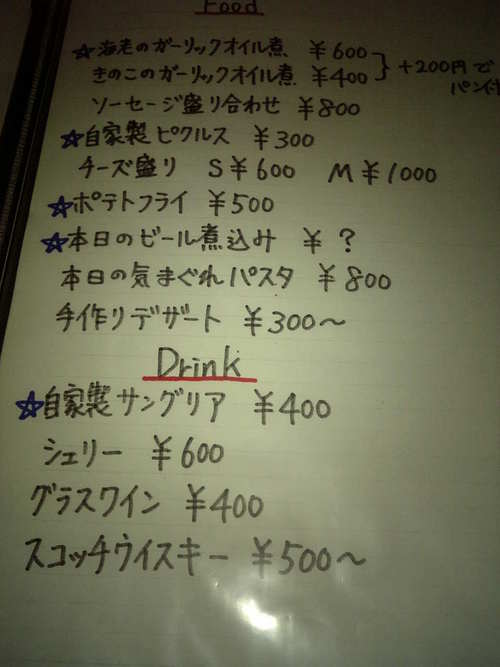 Food
☆海老のガーリックオイル煮 ¥600
きのこのガーリックオイル煮 ¥400
+200円で
パン付
ソーセージ盛り合わせ ¥800
☆自家製ピクルス ¥300
チーズ盛り S¥600 M¥1000
☆ポテトフライ ¥500
☆本日のビール煮込み ¥ ?
本日の気まぐれパスタ ¥800
手作りデザート ¥300〜
Drink
☆自家製サングリア ¥400
シェリー ¥600
グラスワイン ¥400
スコッチウイスキー ¥500〜